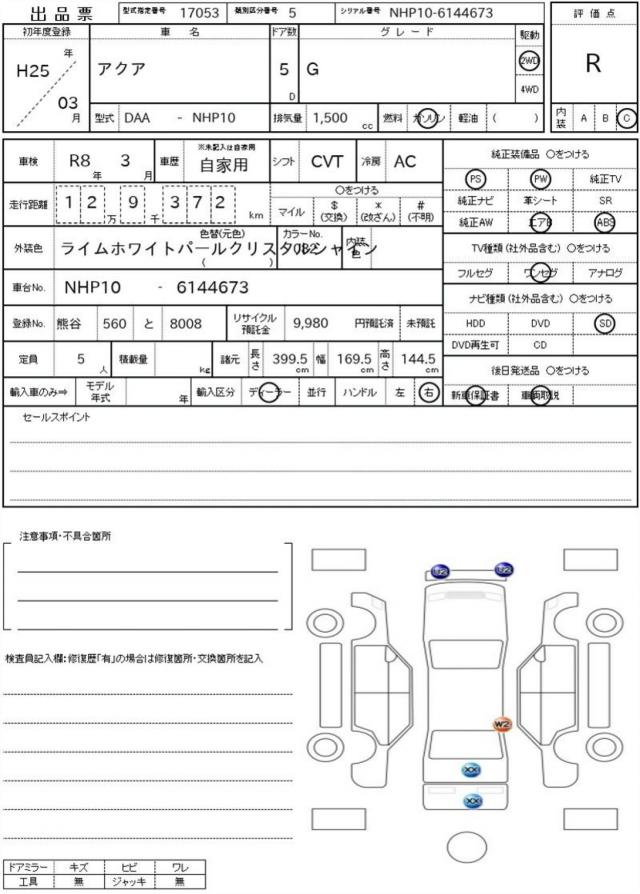 出品票 型式指定番号 17053 類別区分番号 5 シリアル番号 NHP10-6144673
評価点
初年度登録 車名 ドア数 グレード 駆動
H25 年 03 月 アクア 5 D G 2WD 4WD
R
型式 DAA - NHP10 排気量 1,500 cc 燃料 ガソリン 軽油 ( ) 内装 A B C
車検 R8 年 3 月 車歴 ※未記入は自家用 自家用 シフト CVT 冷房 AC
純正装備品 ○をつける
PS PW 純正TV
純正ナビ 革シート SR
純正AW エアB ABS
走行距離 1 2 万 9 千 3 7 2 km ○をつける
マイル $ (交換) * (改ざん) # (不明)
外装色 色替(元色) ライムホワイトパールクリスタルシャイン ( ) カラーNo. 082 内装色
TV種類(社外品含む) ○をつける
フルセグ ワンセグ アナログ
車台No. NHP10 - 6144673
ナビ種類(社外品含む) ○をつける
HDD DVD SD
DVD再生可 CD
登録No. 熊谷 560 と 8008 リサイクル預託金 9,980 円預託済 未預託
定員 5 人 積載量 kg 諸元 長さ 399.5 cm 幅 169.5 cm 高さ 144.5 cm
後日発送品 ○をつける
新車保証書 車両取説
輸入車のみ⇒ モデル年式 年 輸入区分 ディーラー 並行 ハンドル 左 右
セールスポイント
注意事項・不具合箇所
U2 U2
検査員記入欄:修復歴「有」の場合は修復箇所・交換箇所を記入
W2
XX
XX
ドアミラー キズ ヒビ ワレ
工具 無 ジャッキ 無